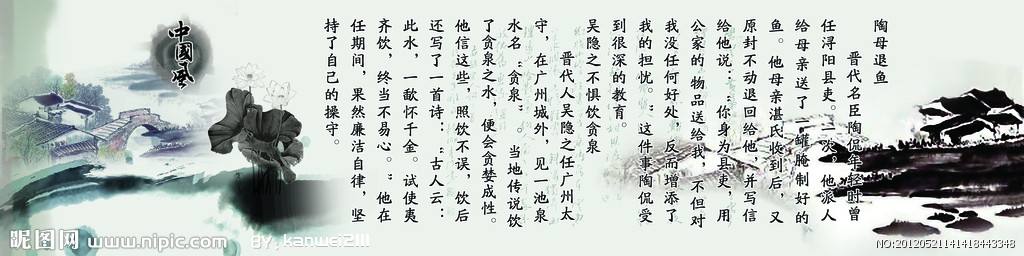 中國風
陶母退鱼
晋代名臣陶侃年轻时曾
任浔阳县吏。一次，他派人
给母亲送了一罐腌制好的
鱼。他母亲湛氏收到后，又
原封不动退回给他，并写信
给他说：“你身为县吏，用
公家的物品送给我，不但对
我没任何好处，反而增添了
我的担忧。”这件事陶侃受
到很深的教育。
吴隐之不惧饮贪泉
晋代人吴隐之任广州太
守，在广州城外，见一池泉
水名“贪泉”。当地传说饮
了贪泉之水，便会贪婪成性。
他信这些，照饮不误，饮后
还写了一首诗：“古人云：
此水，一歃怀千金。试使夷
齐饮，终当不易心。”他在
任期间，果然廉洁自律，坚
持了自己的操守。
昵图网 www.nipic.com
BY: kanwei2lll
NO:20120521141418443348